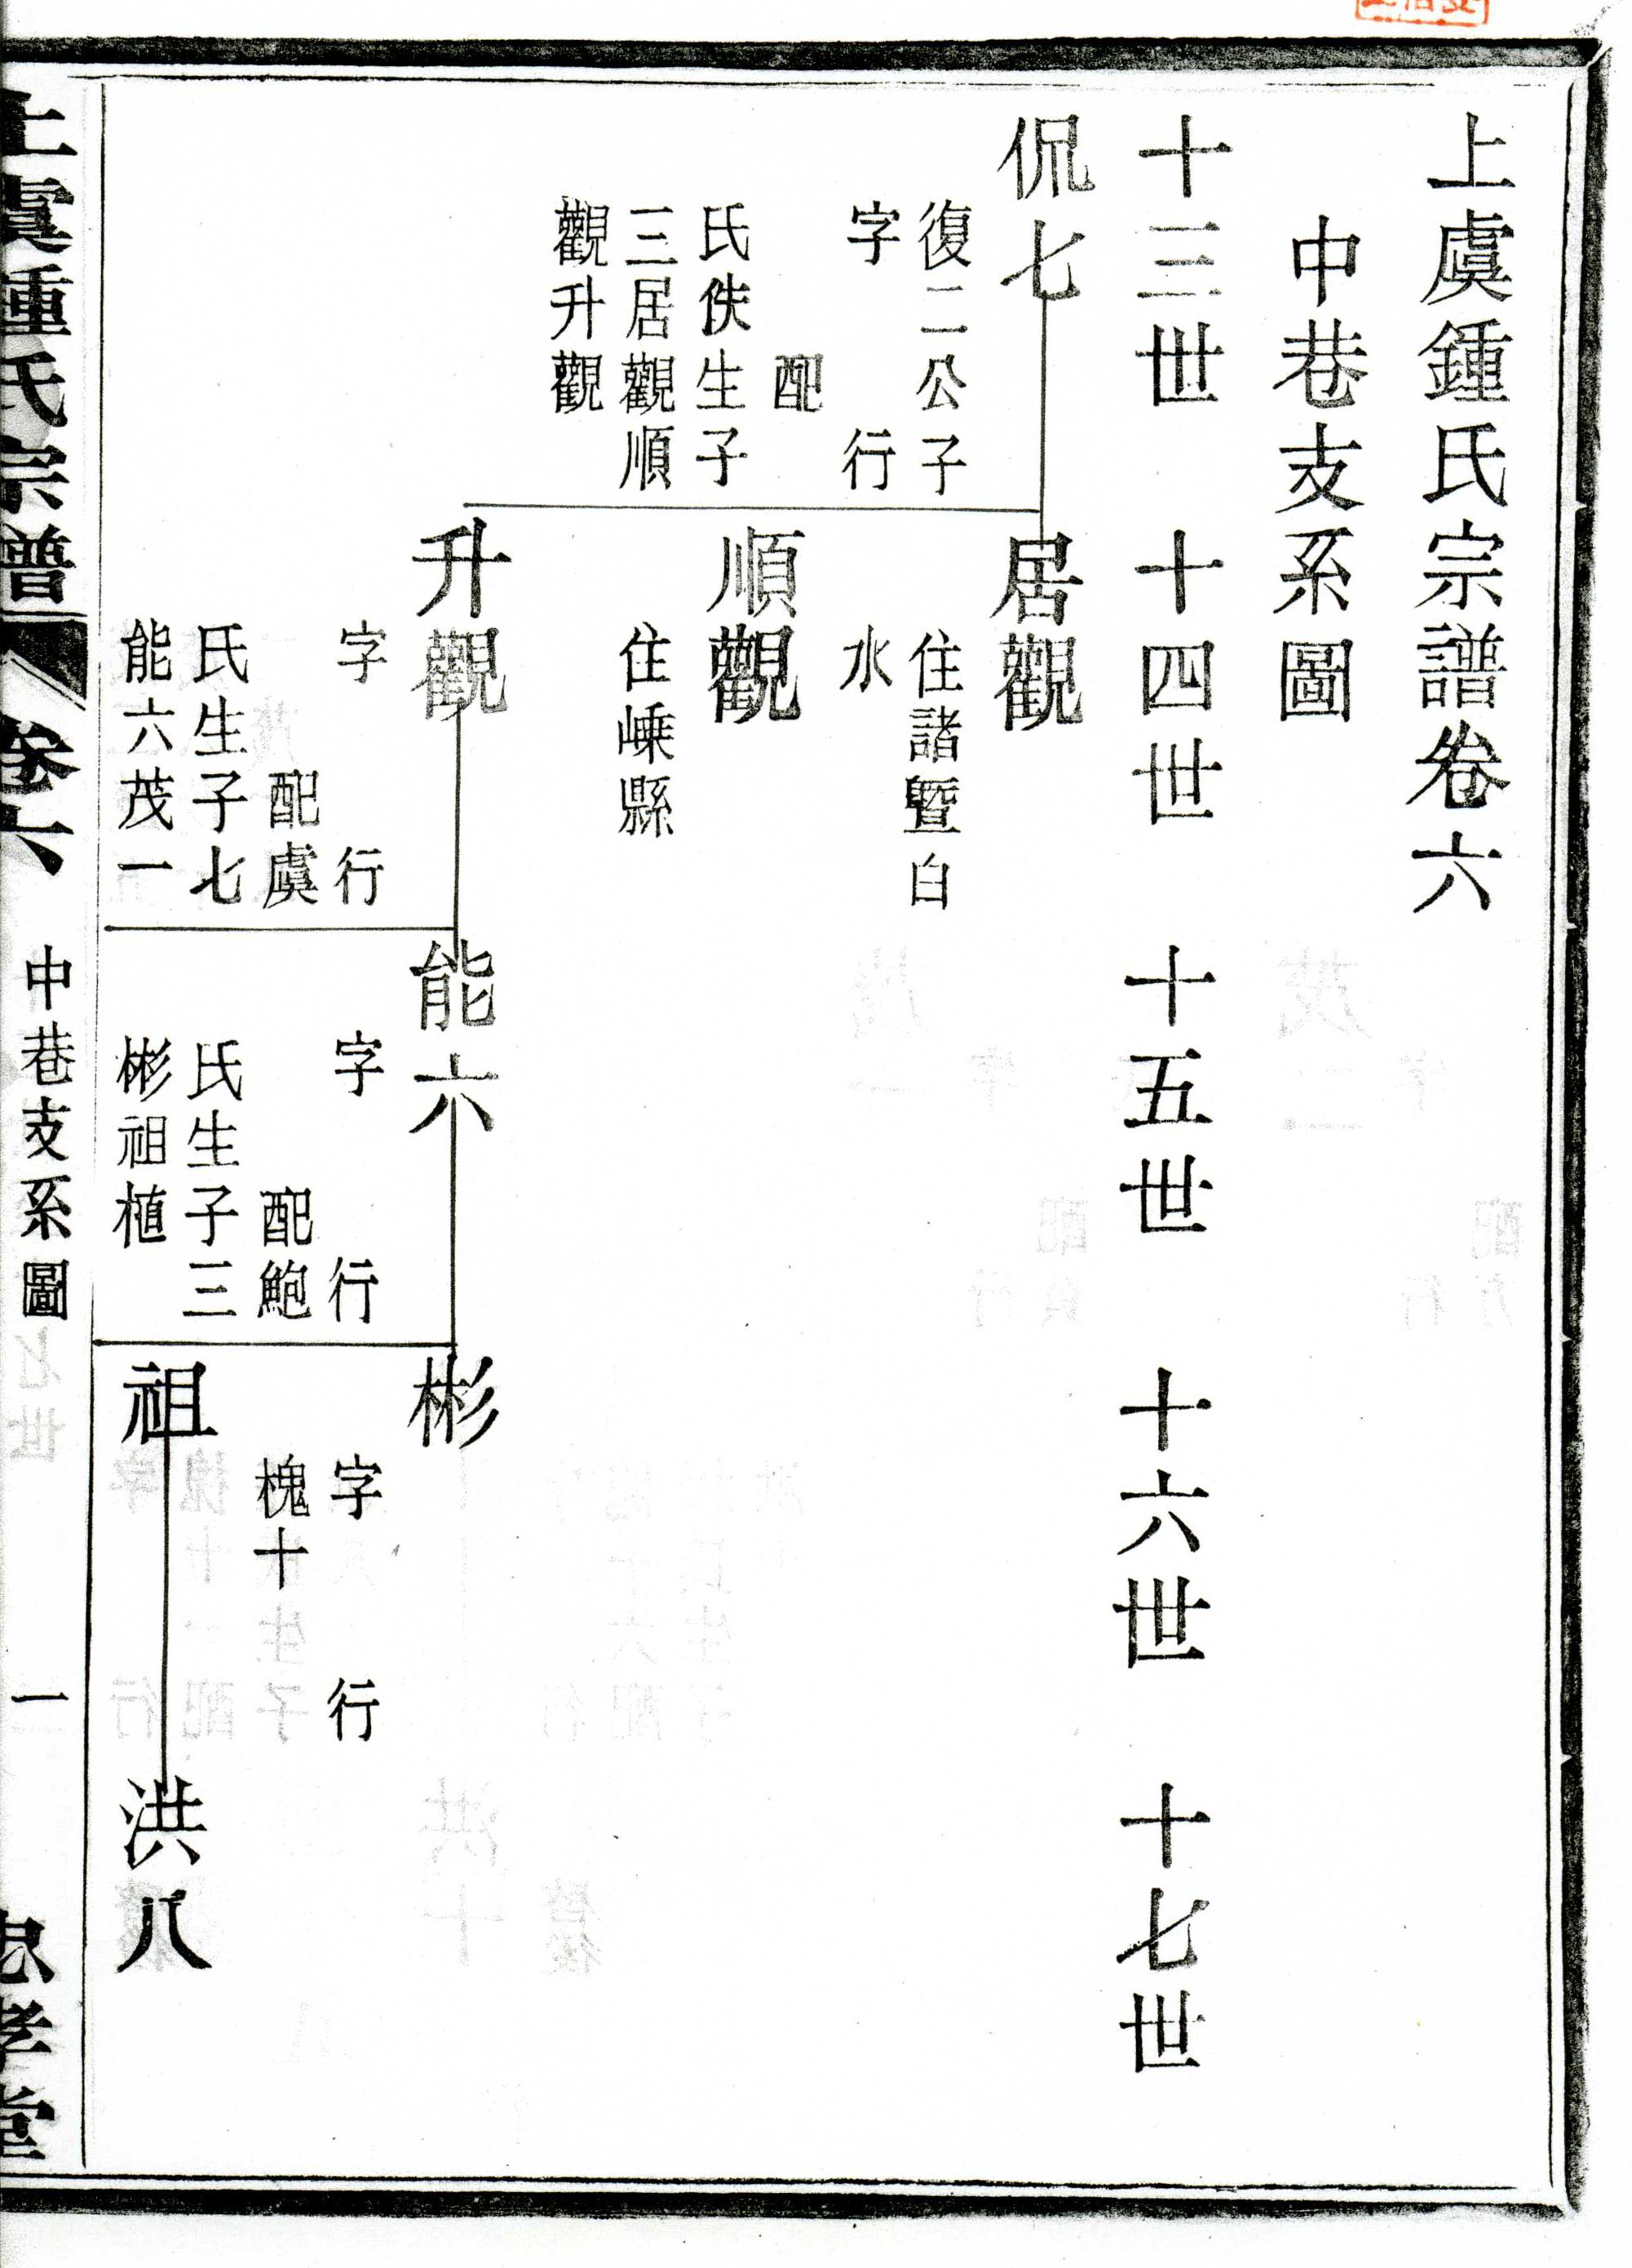 上虞鍾氏宗譜卷六
中巷支系圖
十三世 十四世 十五世 十六世 十七世
侃七
復二公子
字 行
配
氏佚生子
三居觀順
觀升觀
居觀
住諸暨白
水
順觀
住嵊縣
升觀
字 行
配虞
氏生子七
能六茂一
能六
字 行
配鮑
氏生子三
彬祖植
彬
字 行
槐十
祖
洪八
上虞鍾氏宗譜 卷六 中巷支系圖 一 忠孝堂